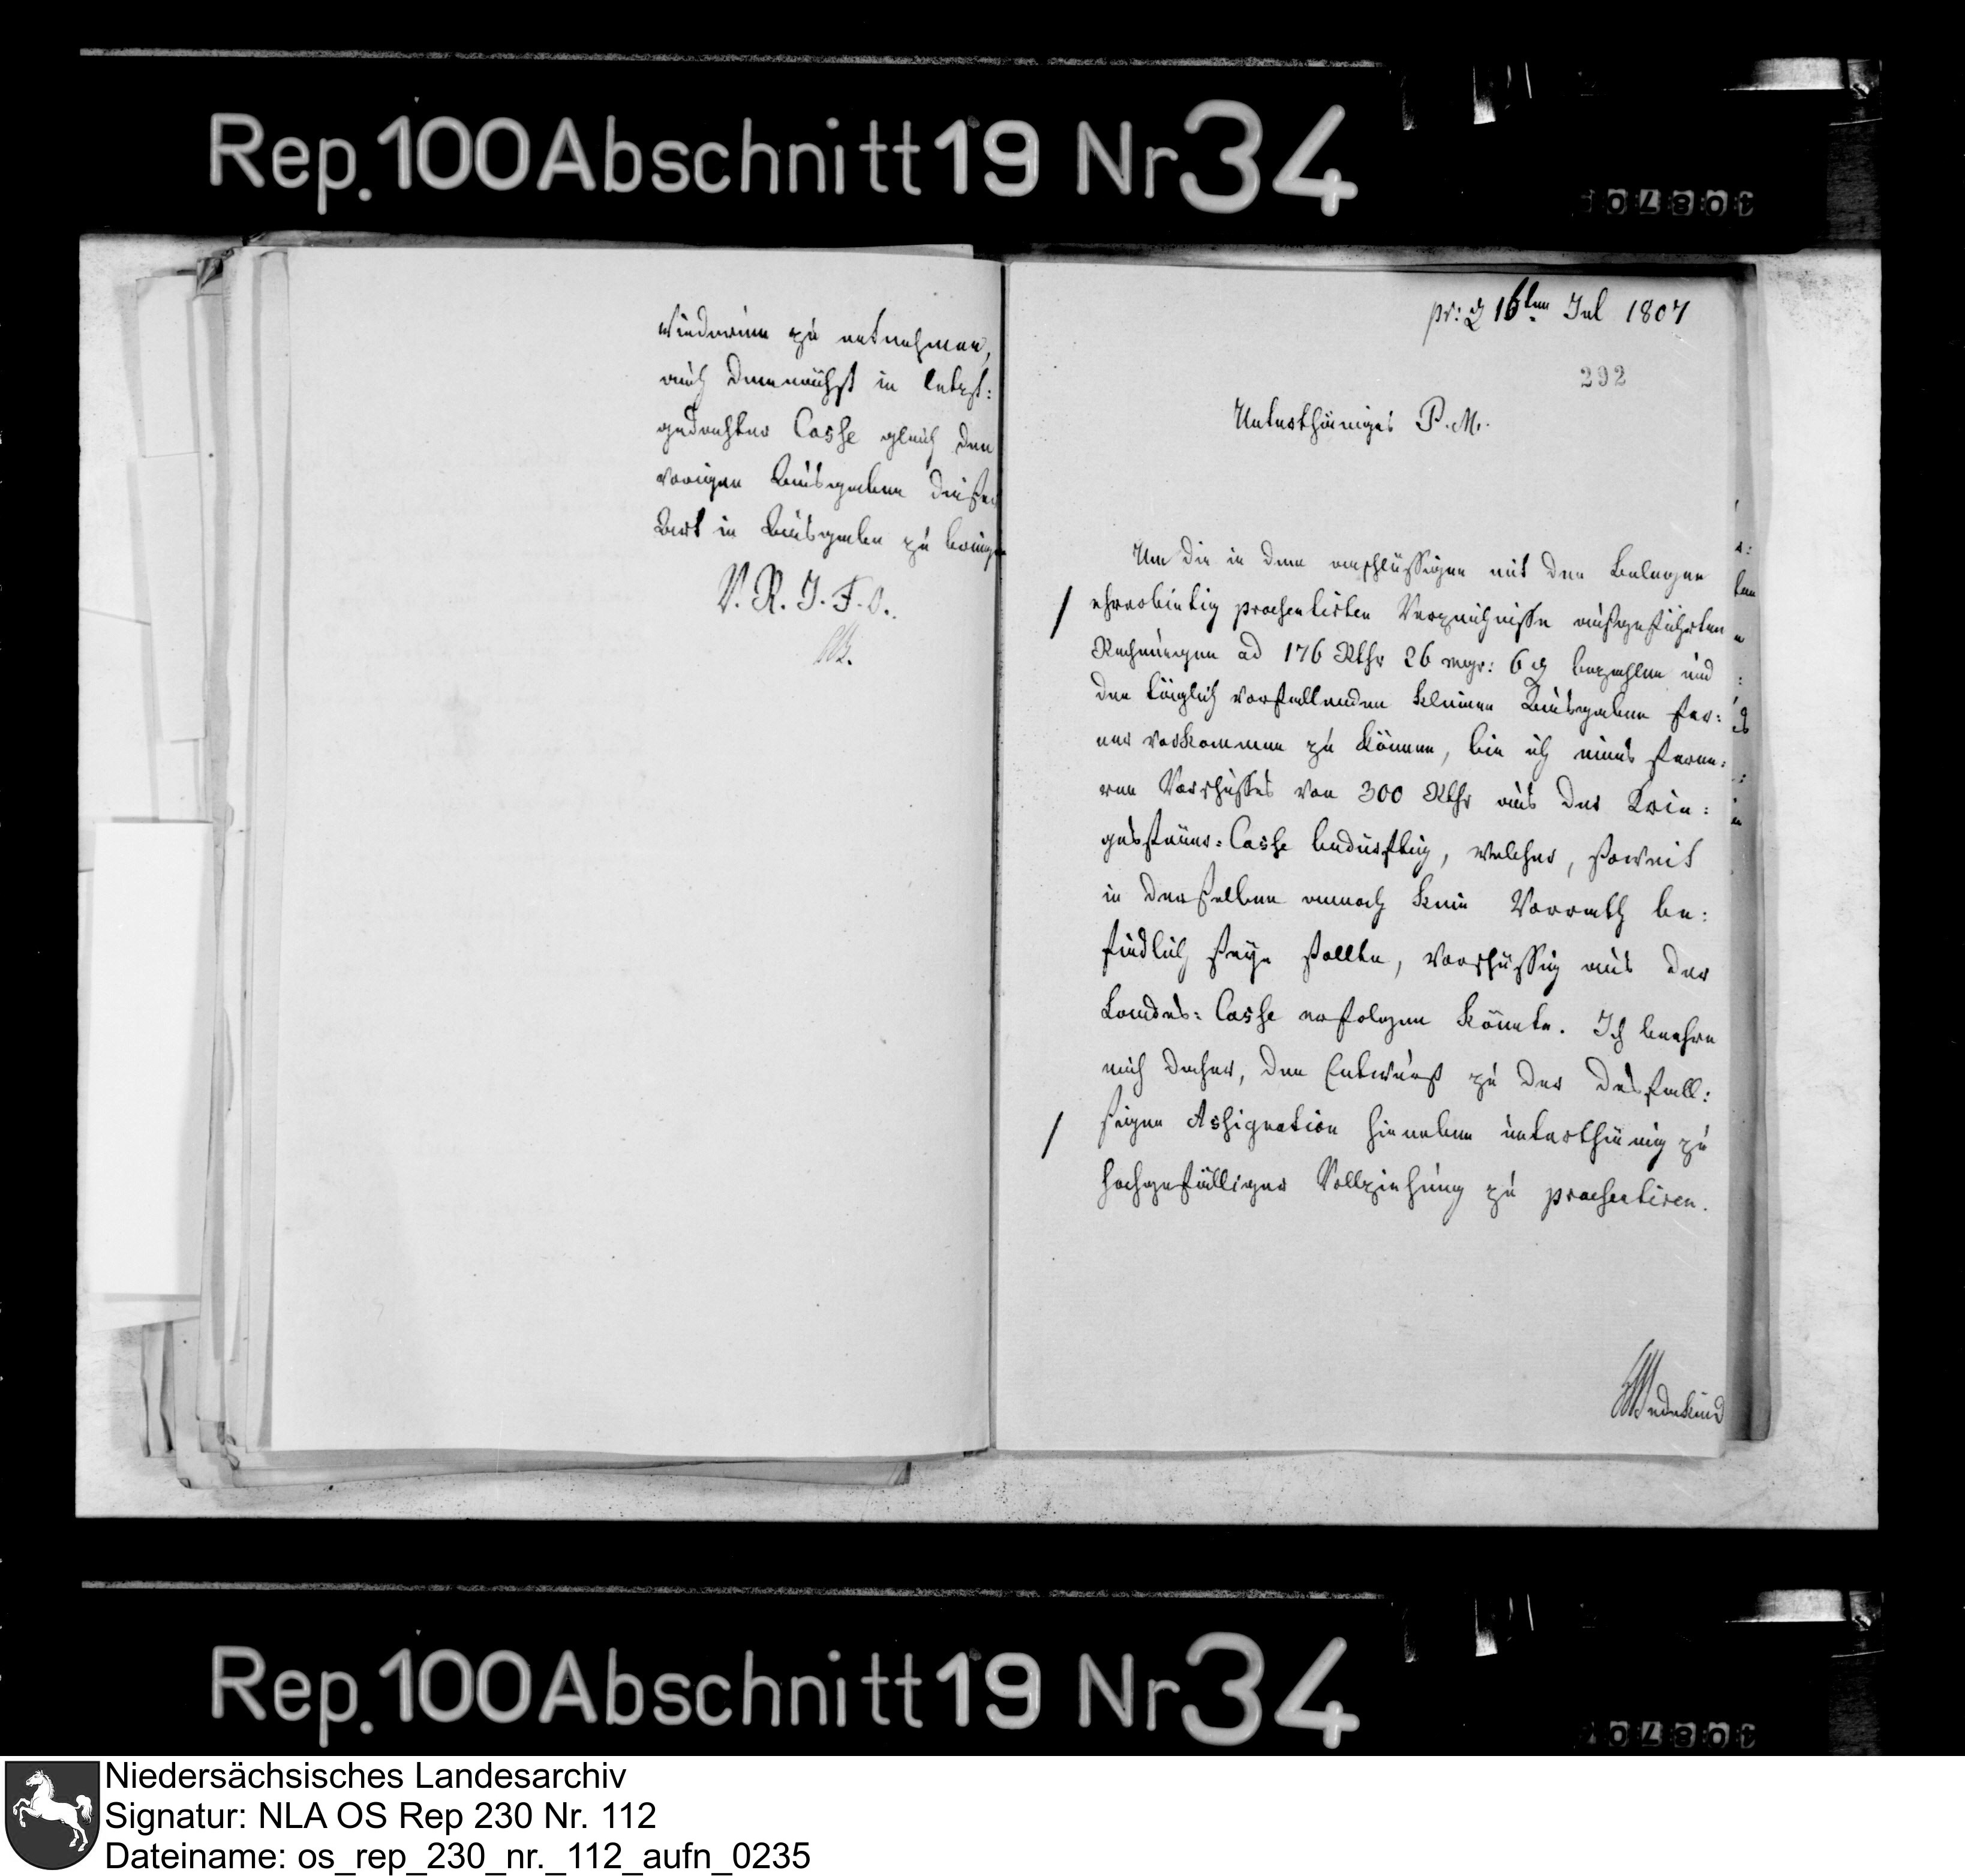 Rep. 100 Abschnitt 19 Nr 34
wiederum zu entnehmen,
auch demnächst in letzt:
gedachter Casse gleich den
vorigen Ausgaben dieser
Art in Ausgabe zu bringen
V. R. J. F. O.
pr: d 16ten Jul 1807
292
Unterthäniges P. M.
Um die in dem anschlüssigen mit den Belegen
ehrerbietig praesentirten Verzeichnisse aufgeführten
Rechnungen ad 176 Rthr 26 mgr: 6 d bezahlen und
den täglich vorfallenden kleinen Ausgaben fer:
ner vorkommen zu können, bin ich eines ferne:
ren Vorschusses von 300 Rthr aus der Krie:
gessteuer-Casse bedürftig, welcher, soweit
in derselben annoch kein Vorrath be:
findlich seyn sollte, vorschüssig aus der
Landes-Casse erfolgen könnte. Ich beehre
mich daher, den Entwurf zu der desfall:
sigen Assignation hieneben unterthänig zu
hochgefälliger Vollziehung zu praesentiren.
Wedekind
Rep. 100 Abschnitt 19 Nr 34
Niedersächsisches Landesarchiv
Signatur: NLA OS Rep 230 Nr. 112
Dateiname: os_rep_230_nr._112_aufn_0235